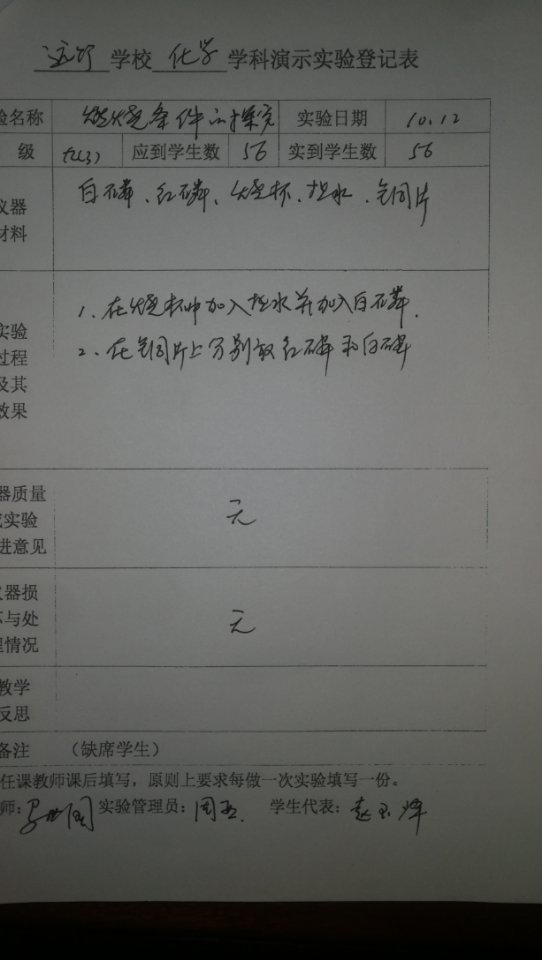 学校 化学 学科演示实验登记表
验名称 燃烧条件的探究 实验日期 10.12
级 九(3) 应到学生数 56 实到学生数 56
仪器 白磷、红磷、烧杯、热水、铜片
材料
1、在烧杯中加入热水并加入白磷.
实验 2、在铜片上分别放红磷和白磷
过程
及其
效果
器质量
实验 无
进意见
器损
与处 无
情况
教学
反思
备注 (缺席学生)
任课教师课后填写，原则上要求每做一次实验填写一份。
师: 实验管理员: 周 学生代表: 赵玉烨